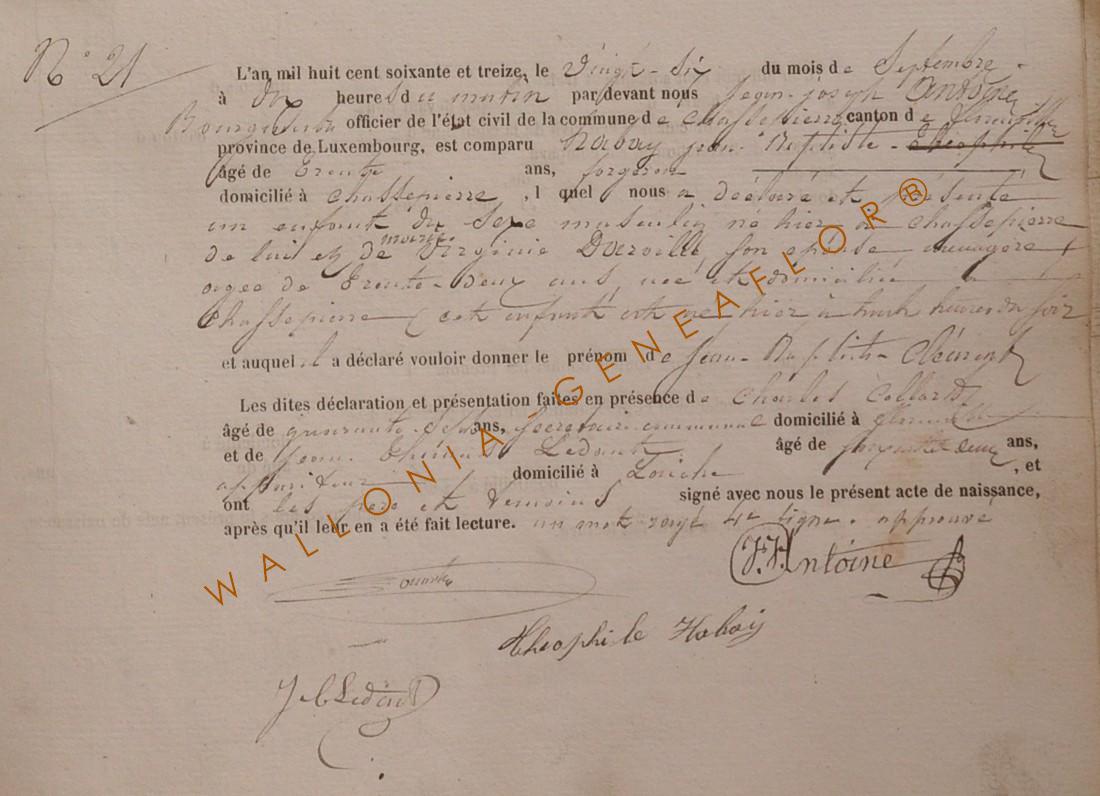 N° 21
L'an mil huit cent soixante et treize, le Vingt-Six du mois de Septembre
à dix heures du matin par devant nous Jean-Joseph Antoine
Bourgmestre officier de l'état civil de la commune de Chassepierre canton de
province de Luxembourg, est comparu Habay Jean-Baptiste-Théophile
âgé de Trente ans, forgeron
domicilié à Chassepierre, lequel nous a déclaré et présenté
un enfant du Sexe masculin né hier à Chassepierre
de lui et de Virginie son épouse, ménagère
agée de Trente-Deux ans, née et domiciliée à
Chassepierre cet enfant est né hier à huit heures du soir
et auquel il a déclaré vouloir donner le prénom de Jean-Baptiste-Clément
Les dites déclaration et présentation faites en présence de Charles Collard
âgé de quarante Sept ans, Secrétaire communal domicilié à
et de Jean Ledant âgé de ans,
appariteur domicilié à Laiche, et
ont les père et témoins signé avec nous le présent acte de naissance,
après qu'il leur en a été fait lecture. un mot rayé 4e ligne approuvé
J.J. Antoine
Théophile Habay
WALLONIA - GENEAFLOR®